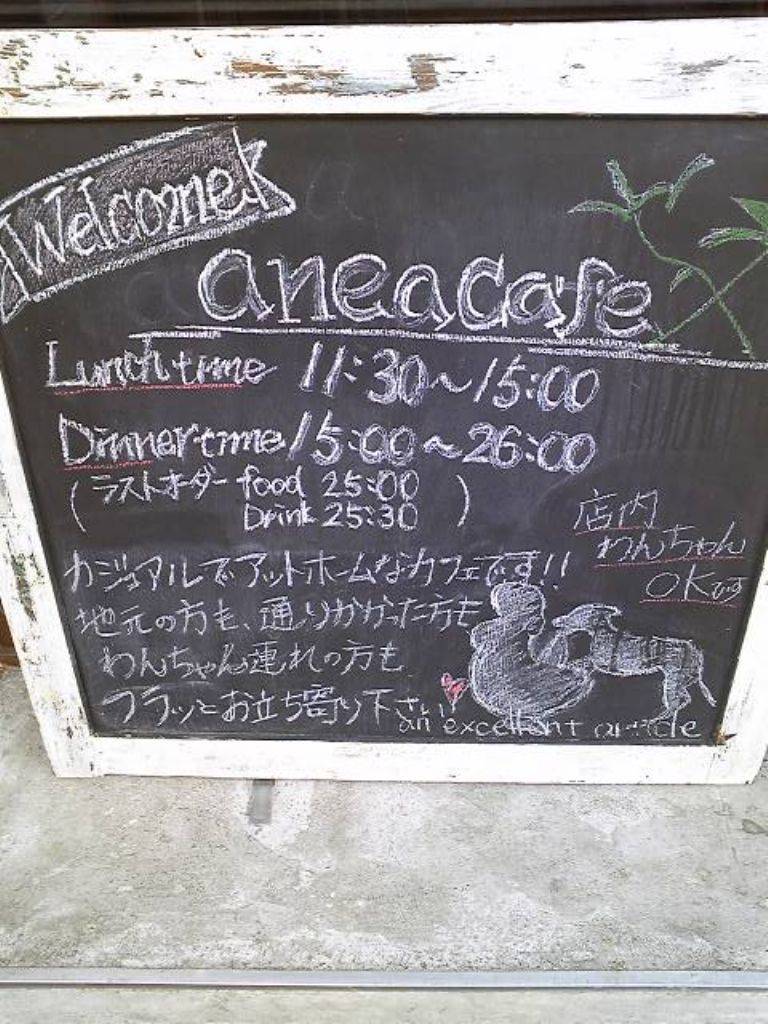 Welcome
aneacafe
Lunch time 11:30～15:00
Dinner time 15:00～26:00
(ラストオーダー food 25:00
Drink 25:30)
店内
わんちゃん
OKです
カジュアルでアットホームなカフェです!!
地元の方も、通りかかった方も
わんちゃん連れの方も
フラッとお立ち寄り下さい
an excellent article